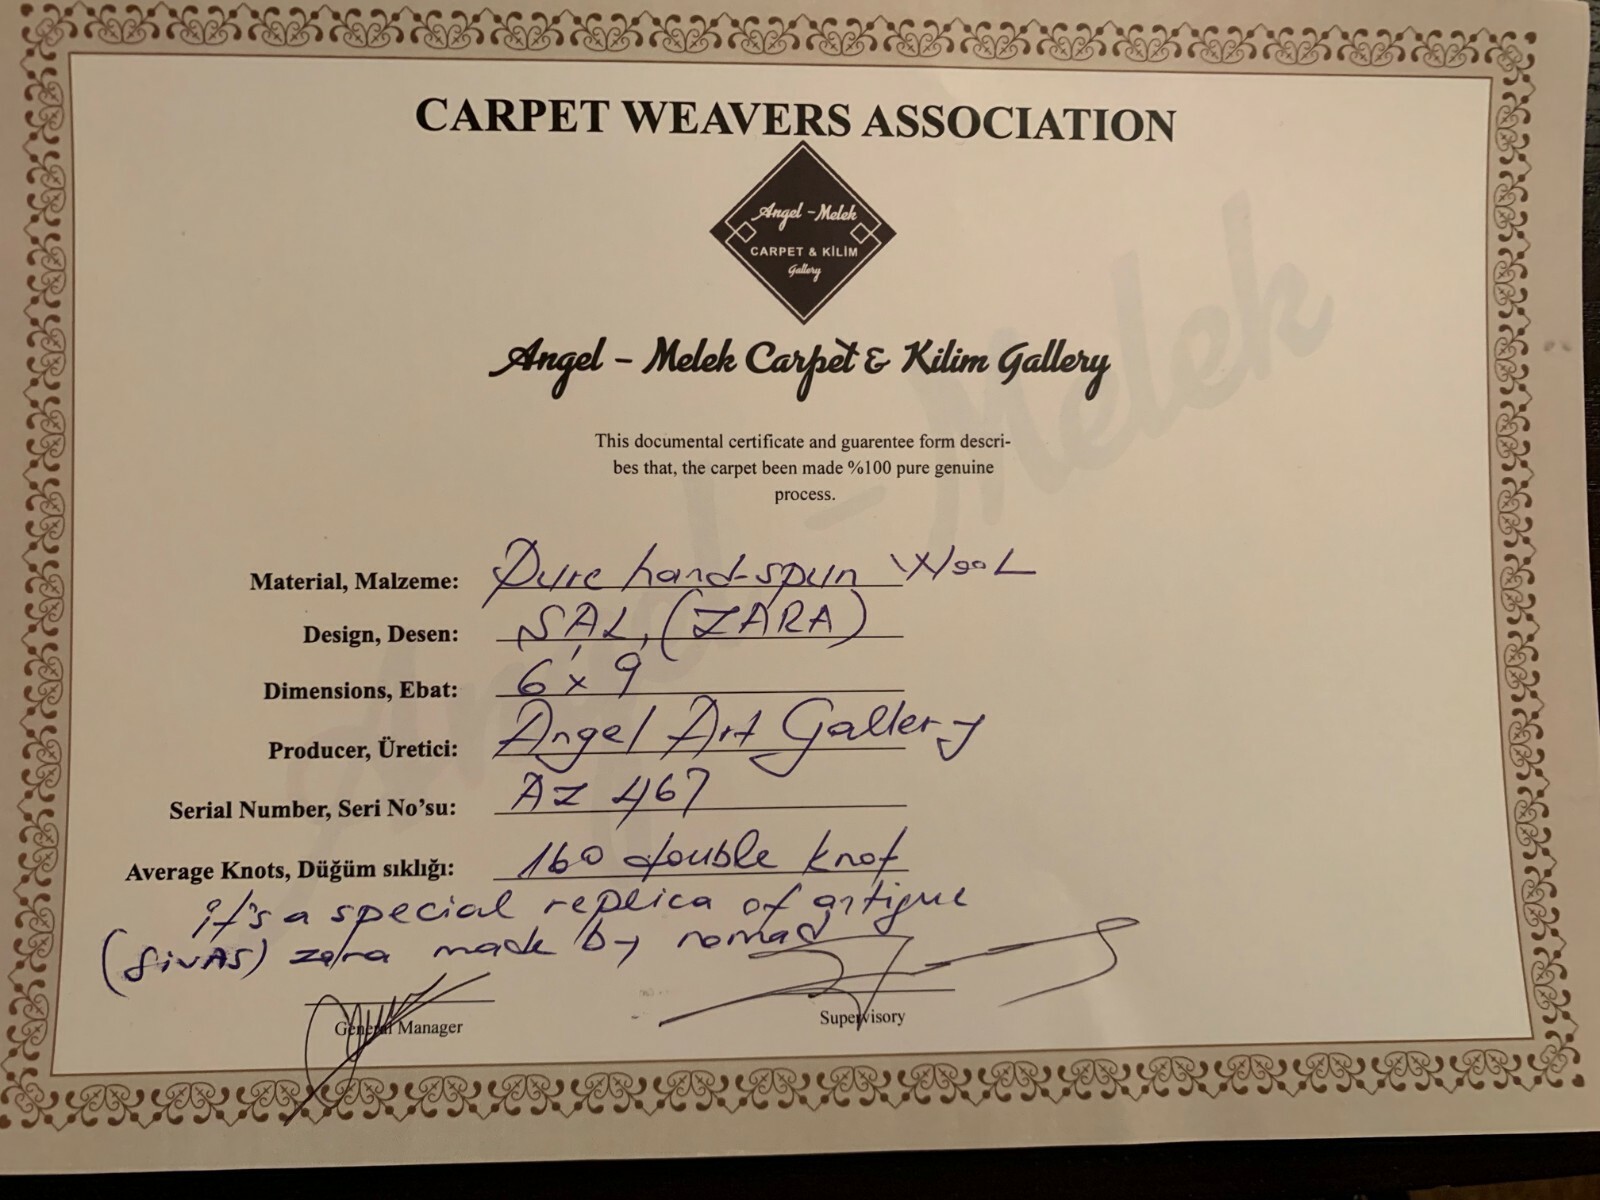 CARPET WEAVERS ASSOCIATION
Angel - Melek
CARPET & KİLİM
Gallery
Angel - Melek Carpet & Kilim Gallery
Angel - Melek
This documental certificate and guarentee form descri-
bes that, the carpet been made %100 pure genuine
process.
Material, Malzeme: Pure hand-spun Wool
Design, Desen: ŞAL, (ZARA)
Dimensions, Ebat: 6' x 9'
Producer, Üretici: Angel Art Gallery
Serial Number, Seri No'su: AZ 467
Average Knots, Düğüm sıklığı: 160 double knot
it's a special replica of antique
(SİVAS) zara made by nomad
General Manager
Supervisory